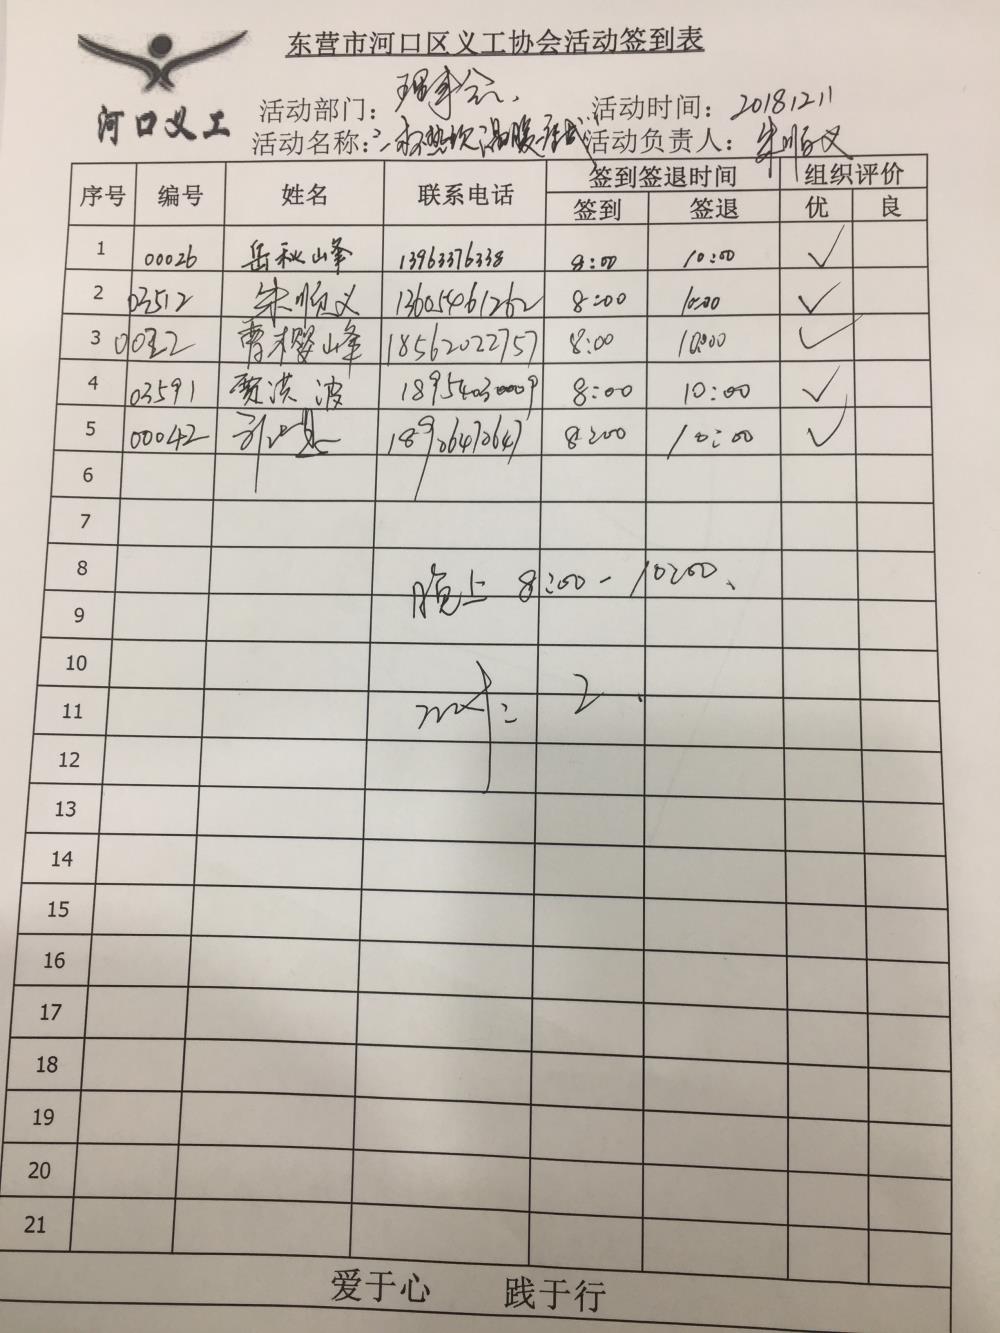 东营市河口区义工协会活动签到表
河口义工
活动部门： 理事会 活动时间： 20181211
活动名称： 温暖 活动负责人： 朱顺义
序号 编号 姓名 联系电话 签到签退时间 组织评价
签到 签退 优 良
1 00026 岳秋峰 13963376338 8:00 10:00 ✓
2 03512 朱顺义 13605461262 8:00 10:00 ✓
3 峰 18562022757 8:00 10:00 ✓
4 03591 贾洪波 18954030009 8:00 10:00 ✓
5 00042 18906470647 8:00 10:00 ✓
6
7
8
晚上 8:00-10:00、
9
10
11
2
12
13
14
15
16
17
18
19
20
21
爱于心 践于行